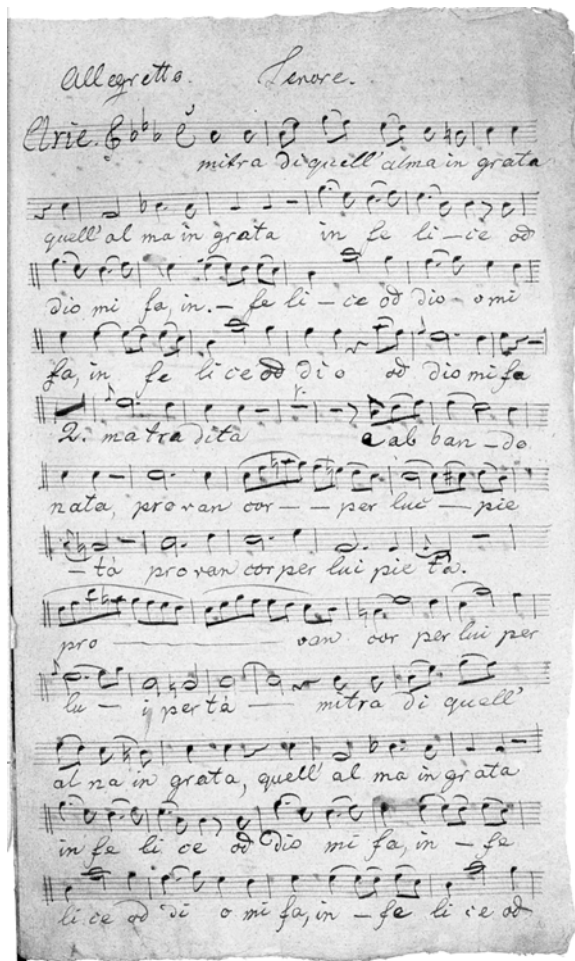 Allegretto. Tenore.
Arie.
mitra di quell' alma in grata
quell' al ma in grata in fe li - ce od
dio mi fa, in. - fe li - ce od dio - o mi
fa, in fe li ce od dio od dio mi fa
2. ma tra dita e ab ban - do
nata, pro van cor - - per lui - pie
- tà pro van cor per lui pie tà.
pro van cor per lui per
lu - i per tà - mitra di quell'
al na in grata, quell' al ma in grata
in fe li ce od dio mi fa, in - fe
li ce od di o mi fa, in - fe li ce od